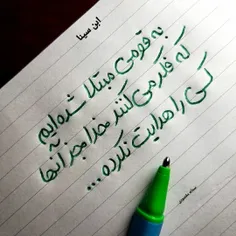 ابن سینا
به قومی مبتلا شده ایم
که فکر می کنند خدا جز آنها
کسی را هدایت نکرده...